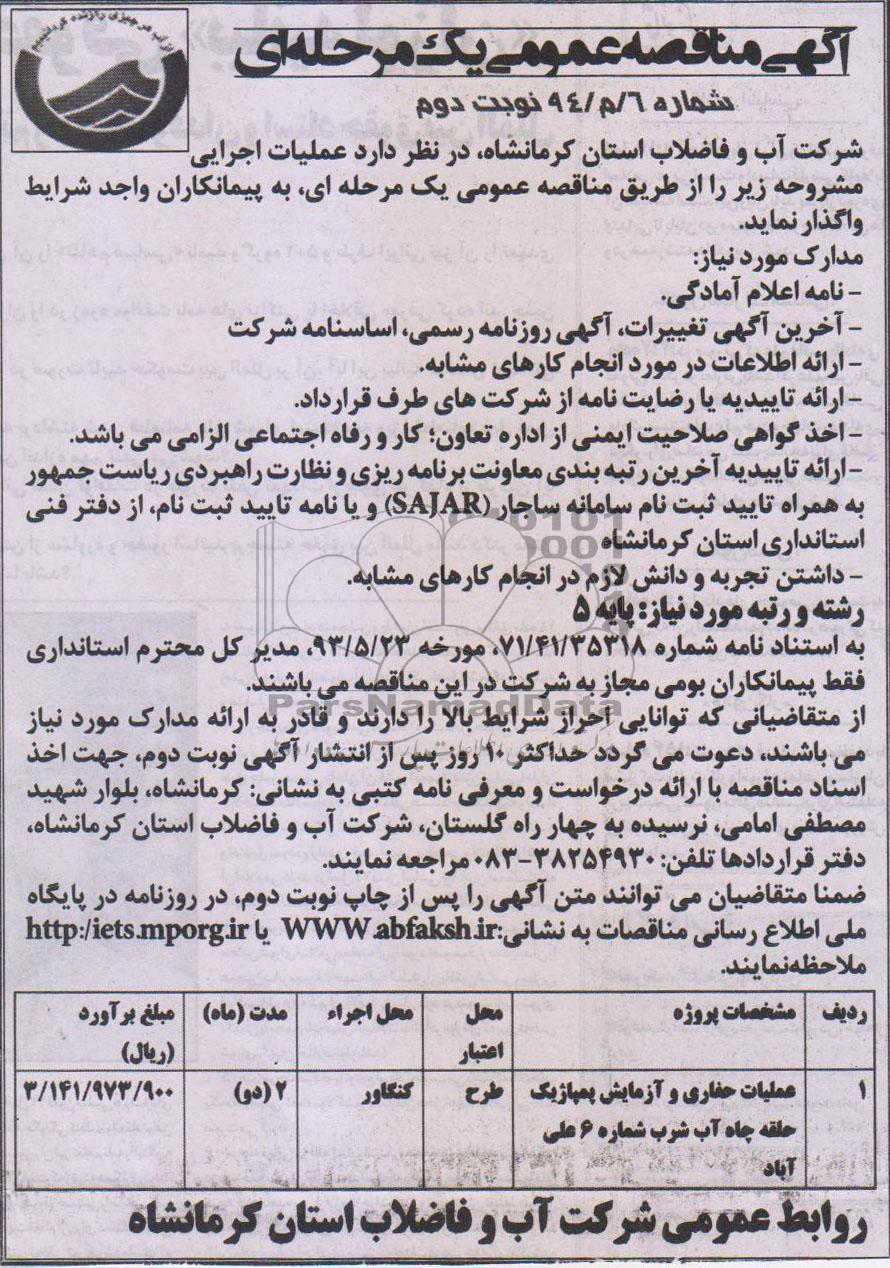 آگهی مناقصه عمومی یک مرحله‌ای
شماره ۶/م/۹۴ نوبت دوم
شرکت آب و فاضلاب استان کرمانشاه، در نظر دارد عملیات اجرایی
مشروحه زیر را از طریق مناقصه عمومی یک مرحله ای، به پیمانکاران واجد شرایط
واگذار نماید.
مدارک مورد نیاز:
- نامه اعلام آمادگی.
- آخرین آگهی تغییرات، آگهی روزنامه رسمی، اساسنامه شرکت
- ارائه اطلاعات در مورد انجام کارهای مشابه.
- ارائه تاییدیه یا رضایت نامه از شرکت های طرف قرارداد.
- اخذ گواهی صلاحیت ایمنی از اداره تعاون؛ کار و رفاه اجتماعی الزامی می باشد.
- ارائه تاییدیه آخرین رتبه بندی معاونت برنامه ریزی و نظارت راهبردی ریاست جمهور
به همراه تایید ثبت نام سامانه ساجار (SAJAR) و یا نامه تایید ثبت نام، از دفتر فنی
استانداری استان کرمانشاه
- داشتن تجربه و دانش لازم در انجام کارهای مشابه.
رشته و رتبه مورد نیاز: پایه ۵
به استناد نامه شماره ۷۱/۴۱/۳۵۳۱۸، مورخه ۹۳/۵/۲۳، مدیر کل محترم استانداری
فقط پیمانکاران بومی مجاز به شرکت در این مناقصه می باشند.
ParsNamadData
از متقاضیانی که توانایی احراز شرایط بالا را دارند و قادر به ارائه مدارک مورد نیاز
می باشند، دعوت می گردد حداکثر ۱۰ روز پس از انتشار آگهی نوبت دوم، جهت اخذ
اسناد مناقصه با ارائه درخواست و معرفی نامه کتبی به نشانی: کرمانشاه، بلوار شهید
مصطفی امامی، نرسیده به چهار راه گلستان، شرکت آب و فاضلاب استان کرمانشاه،
دفتر قراردادها تلفن: ۳۸۲۵۴۹۳۰-۰۸۳ مراجعه نمایند.
ضمنا متقاضیان می توانند متن آگهی را پس از چاپ نوبت دوم، در روزنامه در پایگاه
ملی اطلاع رسانی مناقصات به نشانی: WWW.abfaksh.ir یا http:/iets.mporg.ir
ملاحظه نمایند.
ردیف مشخصات پروژه محل اعتبار محل اجراء مدت (ماه) مبلغ برآورد (ریال)
۱ عملیات حفاری و آزمایش پمپاژ یک طرح کنگاور ۲ (دو) ۳/۱۴۱/۹۷۳/۹۰۰
حلقه چاه آب شرب شماره ۶ علی
آباد
روابط عمومی شرکت آب و فاضلاب استان کرمانشاه